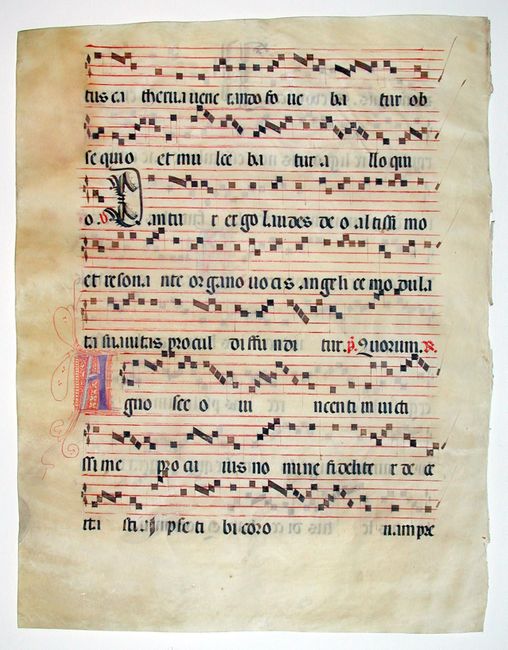 tus ca therua uene rando fo ue ba tur ob
se quio et mu lce ba tur a llo qui
o .v. Cantan tur ergo laudes deo altissi mo
et resona nte organo uocis angelice modula
ta suauitas procul diffun di tur. p. Quorum.
Agno sce o ui ncenti inuicti
ssime pro cu ius no mine fidelite r de ce
rta sti. ipse ti bi coro nam pre